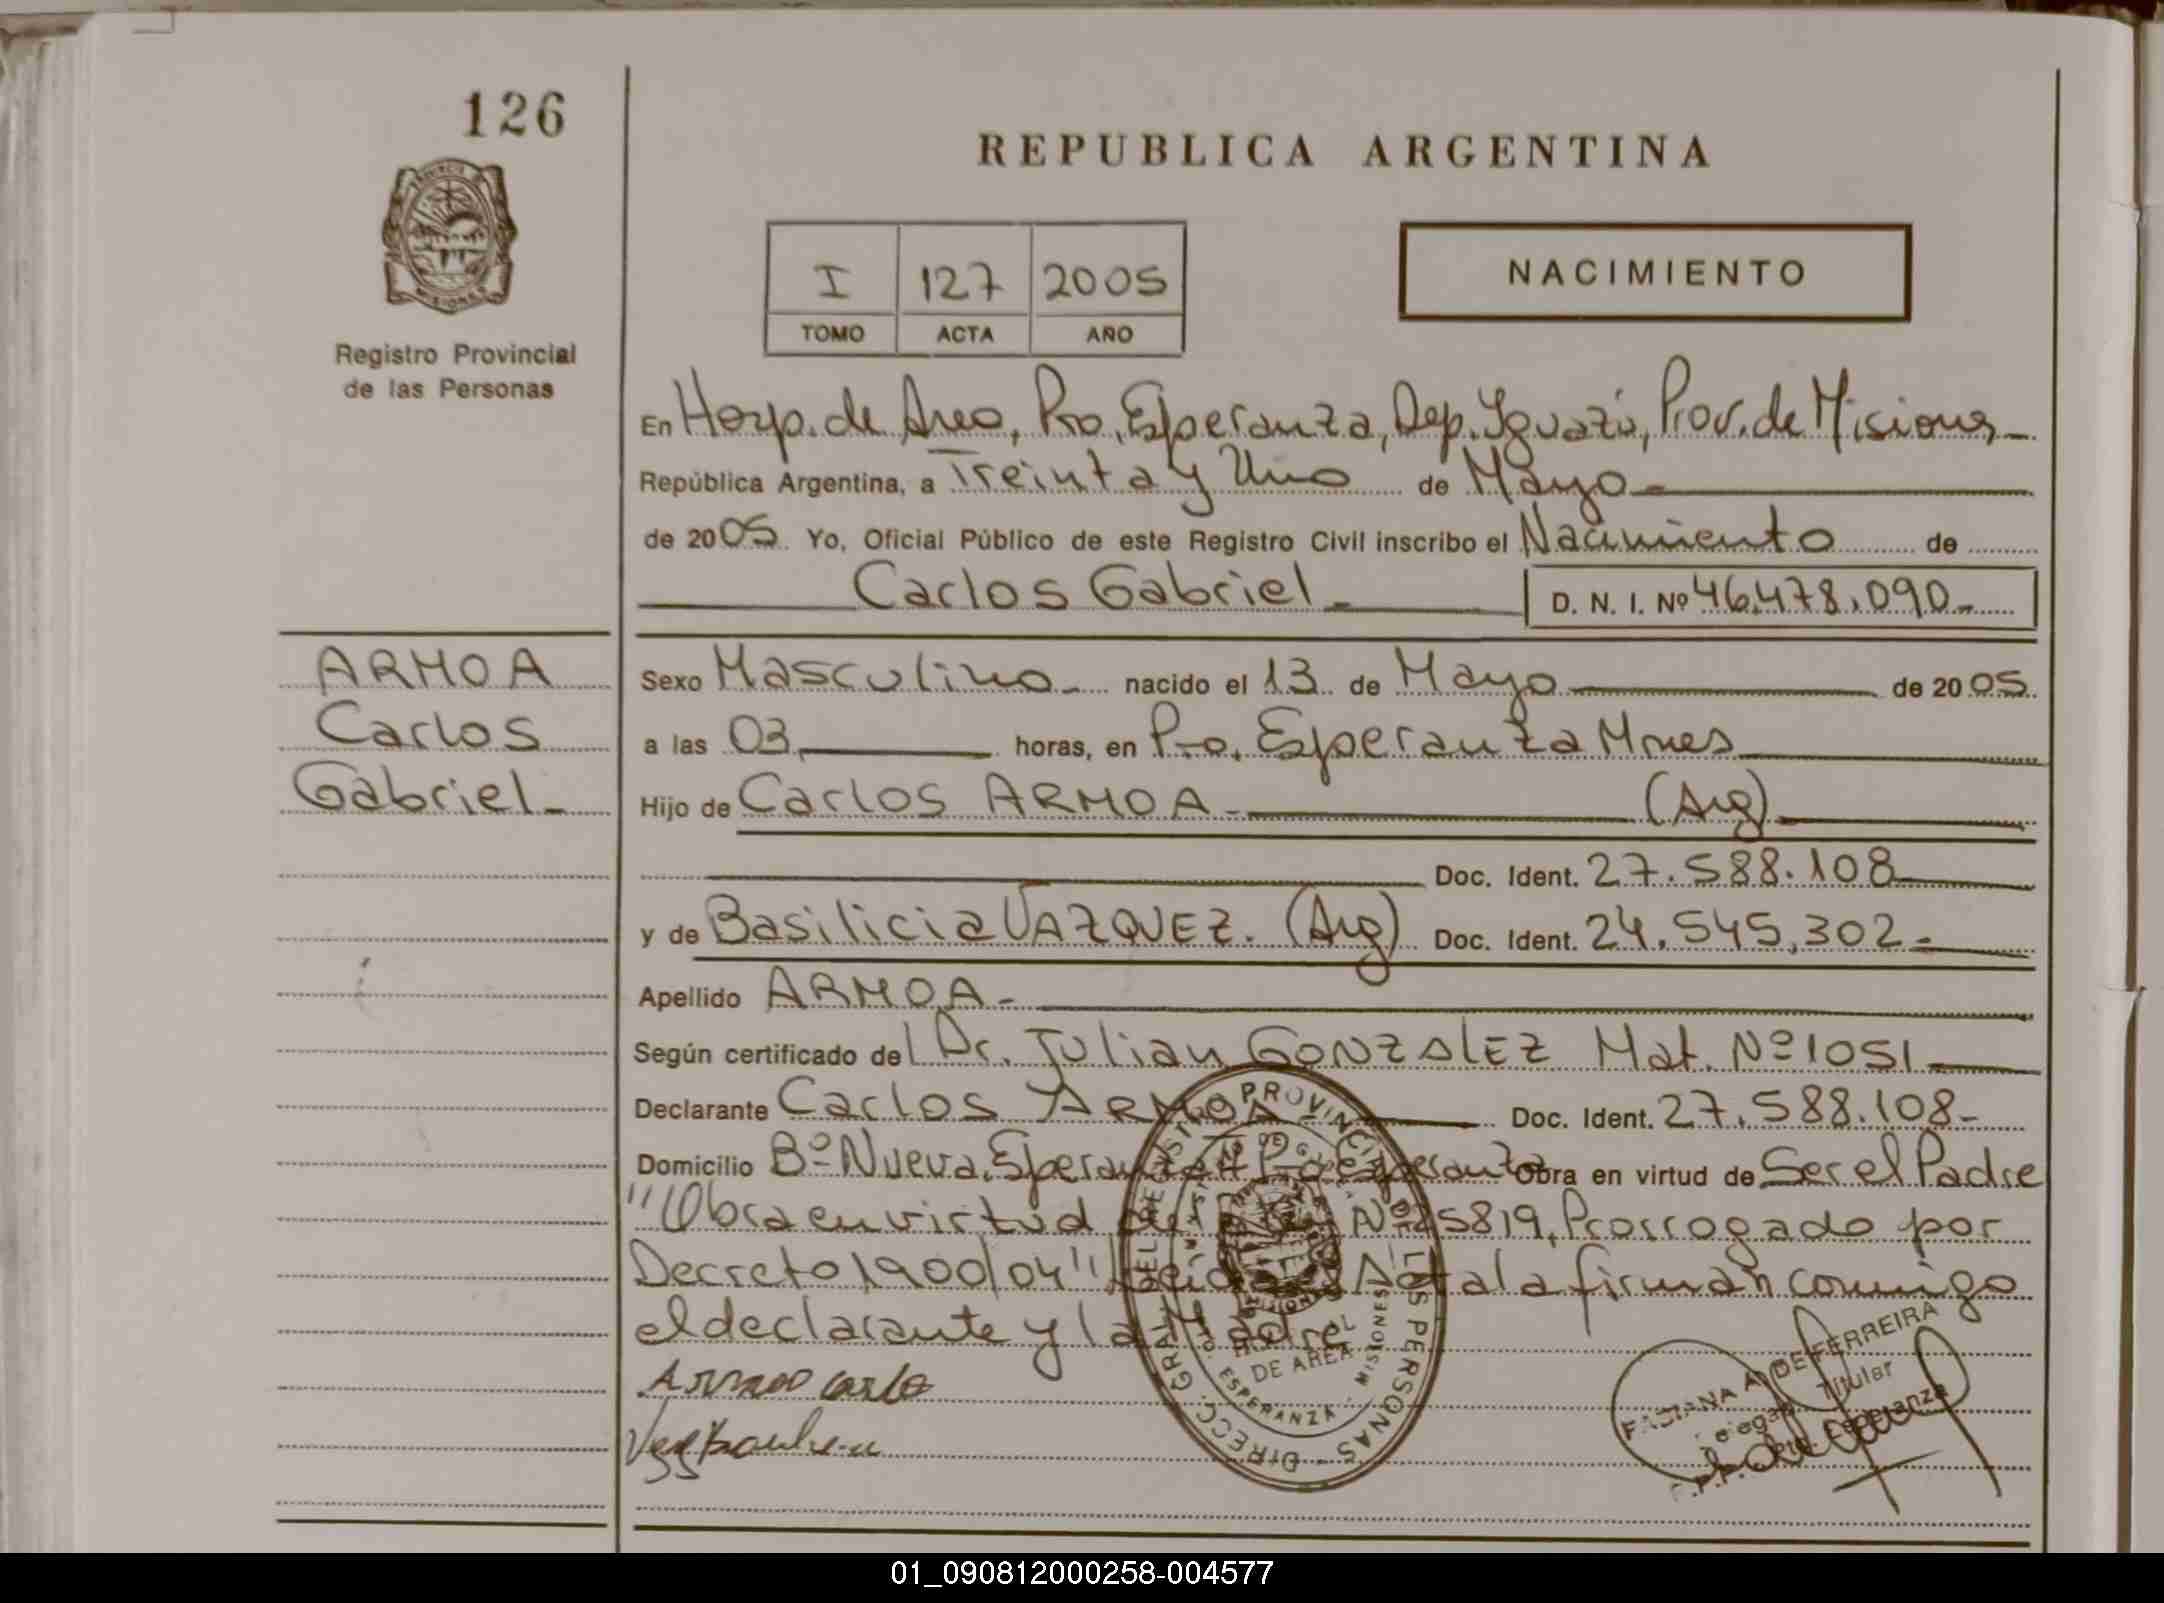 126
REPUBLICA ARGENTINA
PROVINCIA DE
MISIONES
Registro Provincial
de las Personas
I 127 2005
TOMO ACTA AÑO
NACIMIENTO
En Hosp. de Area, Pto. Esperanza, Dep. Iguazú, Prov. de Misiones
República Argentina, a Treinta y Uno de Mayo
de 2005 Yo, Oficial Público de este Registro Civil inscribo el Nacimiento de
Carlos Gabriel D. N. I. Nº 46.478.090
ARMOA
Carlos
Gabriel
Sexo Masculino nacido el 13 de Mayo de 2005
a las 03 horas, en Pto. Esperanza Mnes
Hijo de Carlos ARMOA (Arg)
Doc. Ident. 27.588.108
y de Basilicia VAZQUEZ. (Arg) Doc. Ident. 24.545.302
Apellido ARMOA
Según certificado del Dr. Julian GONZALEZ Mat. Nº 1051
Declarante Carlos ARMOA Doc. Ident. 27.588.108
Domicilio Bº Nueva Esperanza Pto Esperanza Obra en virtud de Ser el Padre
"Obra en virtud Nº 25819, Prorrogado por
Decreto 1900/04" Leída Acta la firman conmigo
el declarante y la Madre
Armoa Carlo
DIRECC. GRAL. DEL REGISTRO PROVINCIAL DE LAS PERSONAS
HOSPITAL
DE AREA
ESPERANZA - MISIONES
FABIANA A. DE FERREIRA
Titular
Pto. Esperanza
01_090812000258-004577